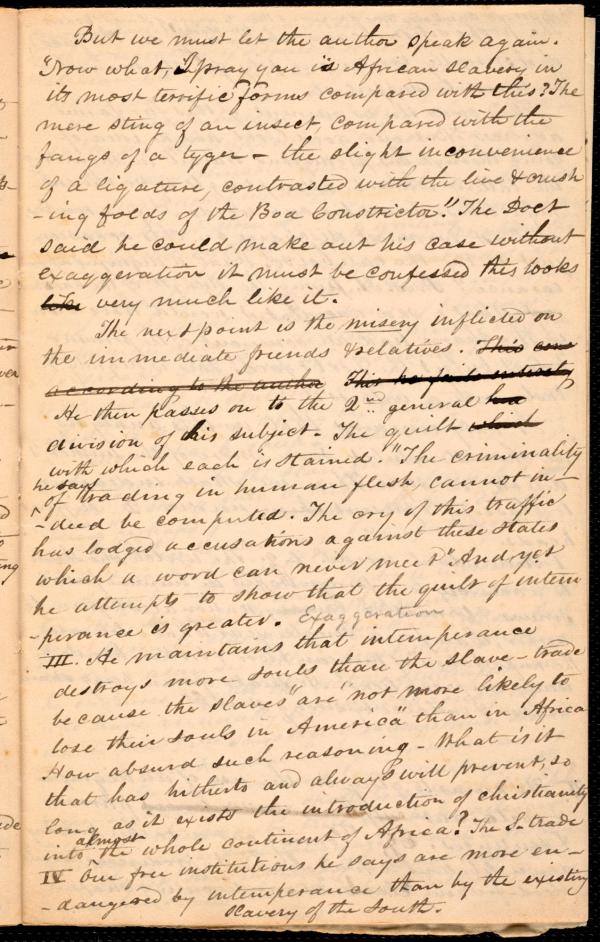 But we must let the author speak again.
"Now what, I pray you is African slavery in
its most terrific forms compared with this? The
mere sting of an insect compared with the
fangs of a tyger - the slight inconvenience
of a ligature, contrasted with the live & crush
-ing folds of the Boa Constrictor." The Doct
said he could make out his case without
exaggeration it must be confessed this looks
like very much like it.
The next point is the misery inflicted on
the immediate friends & relatives. This
according to the author This he
He then passes on to the 2nd general
division of his subject. The guilt which
with which each is stained. "The criminality
he says
of trading in human flesh, cannot in-
-deed be computed. The cry of this traffic
has lodged accusations against these States
which a word can never meet" And yet
he attempts to show that the guilt of intem
-perance is greater. Exaggeration
III. He maintains that intemperance
destroys more souls than the slave-trade
because the slaves "are not more likely to
lose their souls in America" than in Africa
How absurd such reasoning - What is it
that has hitherto and always will prevent, so
long as it exists the introduction of christianity
almost
into the whole continent of Africa? The S-trade
IV Our free institutions he says are more en-
-dangered by intemperance than by the existing
slavery of the South.